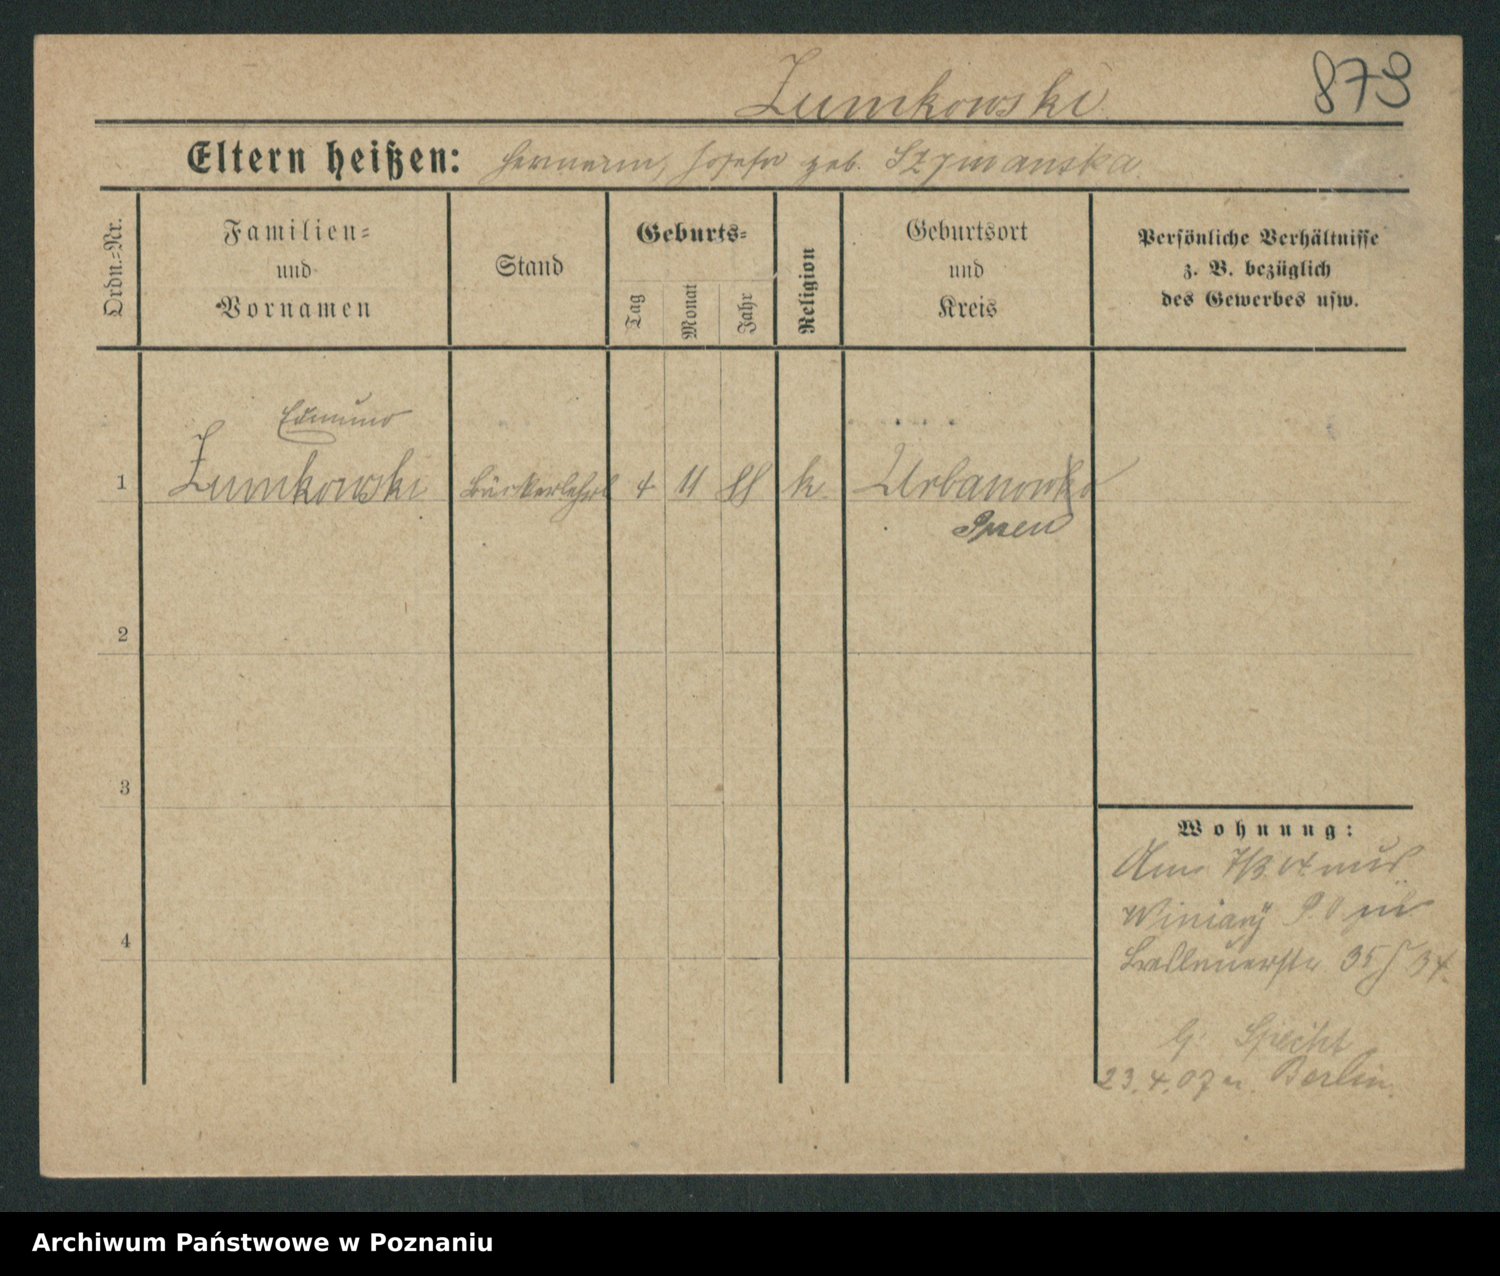 Zumkowski
873
Eltern heißen: Hermann, Josefa geb. Szymanska.
Ordn.-Nr.
Familien-
und
Vornamen
Stand
Geburts-
Tag
Monat
Jahr
Religion
Geburtsort
und
Kreis
Persönliche Verhältnisse
z. B. bezüglich
des Gewerbes usw.
Edmund
1 Zumkowski Bäckerlehrl 4 11 88 k. Urbanowko
Posen
2
3
4
Wohnung:
Am 7/3 04 aus
Winiary
Breslauerstr 35/34.
b. Specht
23.4.07 n. Berlin.
Archiwum Państwowe w Poznaniu